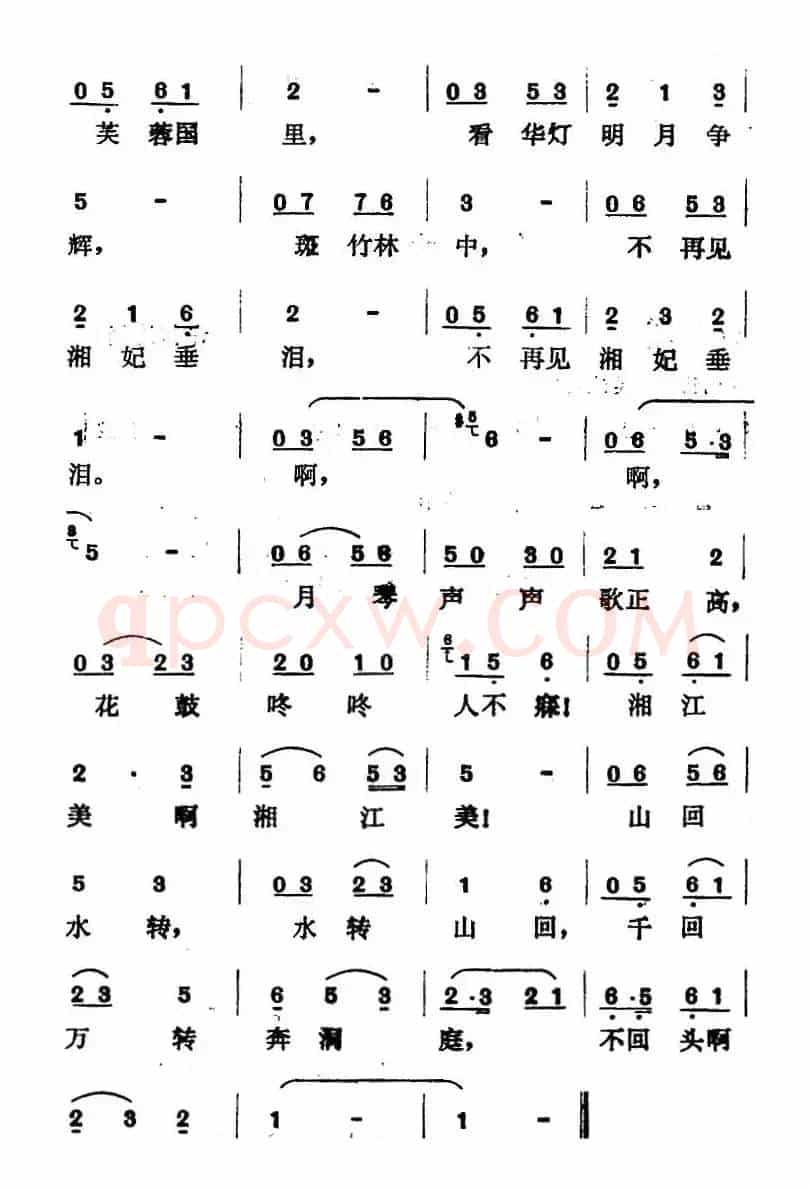 0 5 6 1 | 2 - | 0 3 5 3 | 2 1 3 |
芙蓉国 里, 看 华灯 明月争
5 - | 0 7 7 6 | 3 - | 0 6 5 3 |
辉, 斑 竹林 中, 不 再见
2 1 6 | 2 - | 0 5 6 1 | 2 3 2 |
湘妃垂 泪, 不 再见 湘妃垂
1 - | 0 3 5 6 | 6 - | 0 6 5·3 |
泪。 啊, 啊,
5 - | 0 6 5 6 | 5 0 3 0 | 2 1 2 |
月琴 声 声 歌正 高,
0 3 2 3 | 2 0 1 0 | 6 1 5 6 | 0 5 6 1 |
花 鼓 咚 咚 人不寐! 湘江
2 · 3 | 5 6 5 3 | 5 - | 0 6 5 6 |
美 啊 湘 江 美! 山回
5 3 | 0 3 2 3 | 1 6 | 0 5 6 1 |
水 转, 水转 山 回, 千回
2 3 5 | 6 5 3 | 2·3 2 1 | 6·5 6 1 |
万 转 奔 洞 庭, 不回 头啊
2 3 2 | 1 - | 1 - ‖
qpcxw.COM